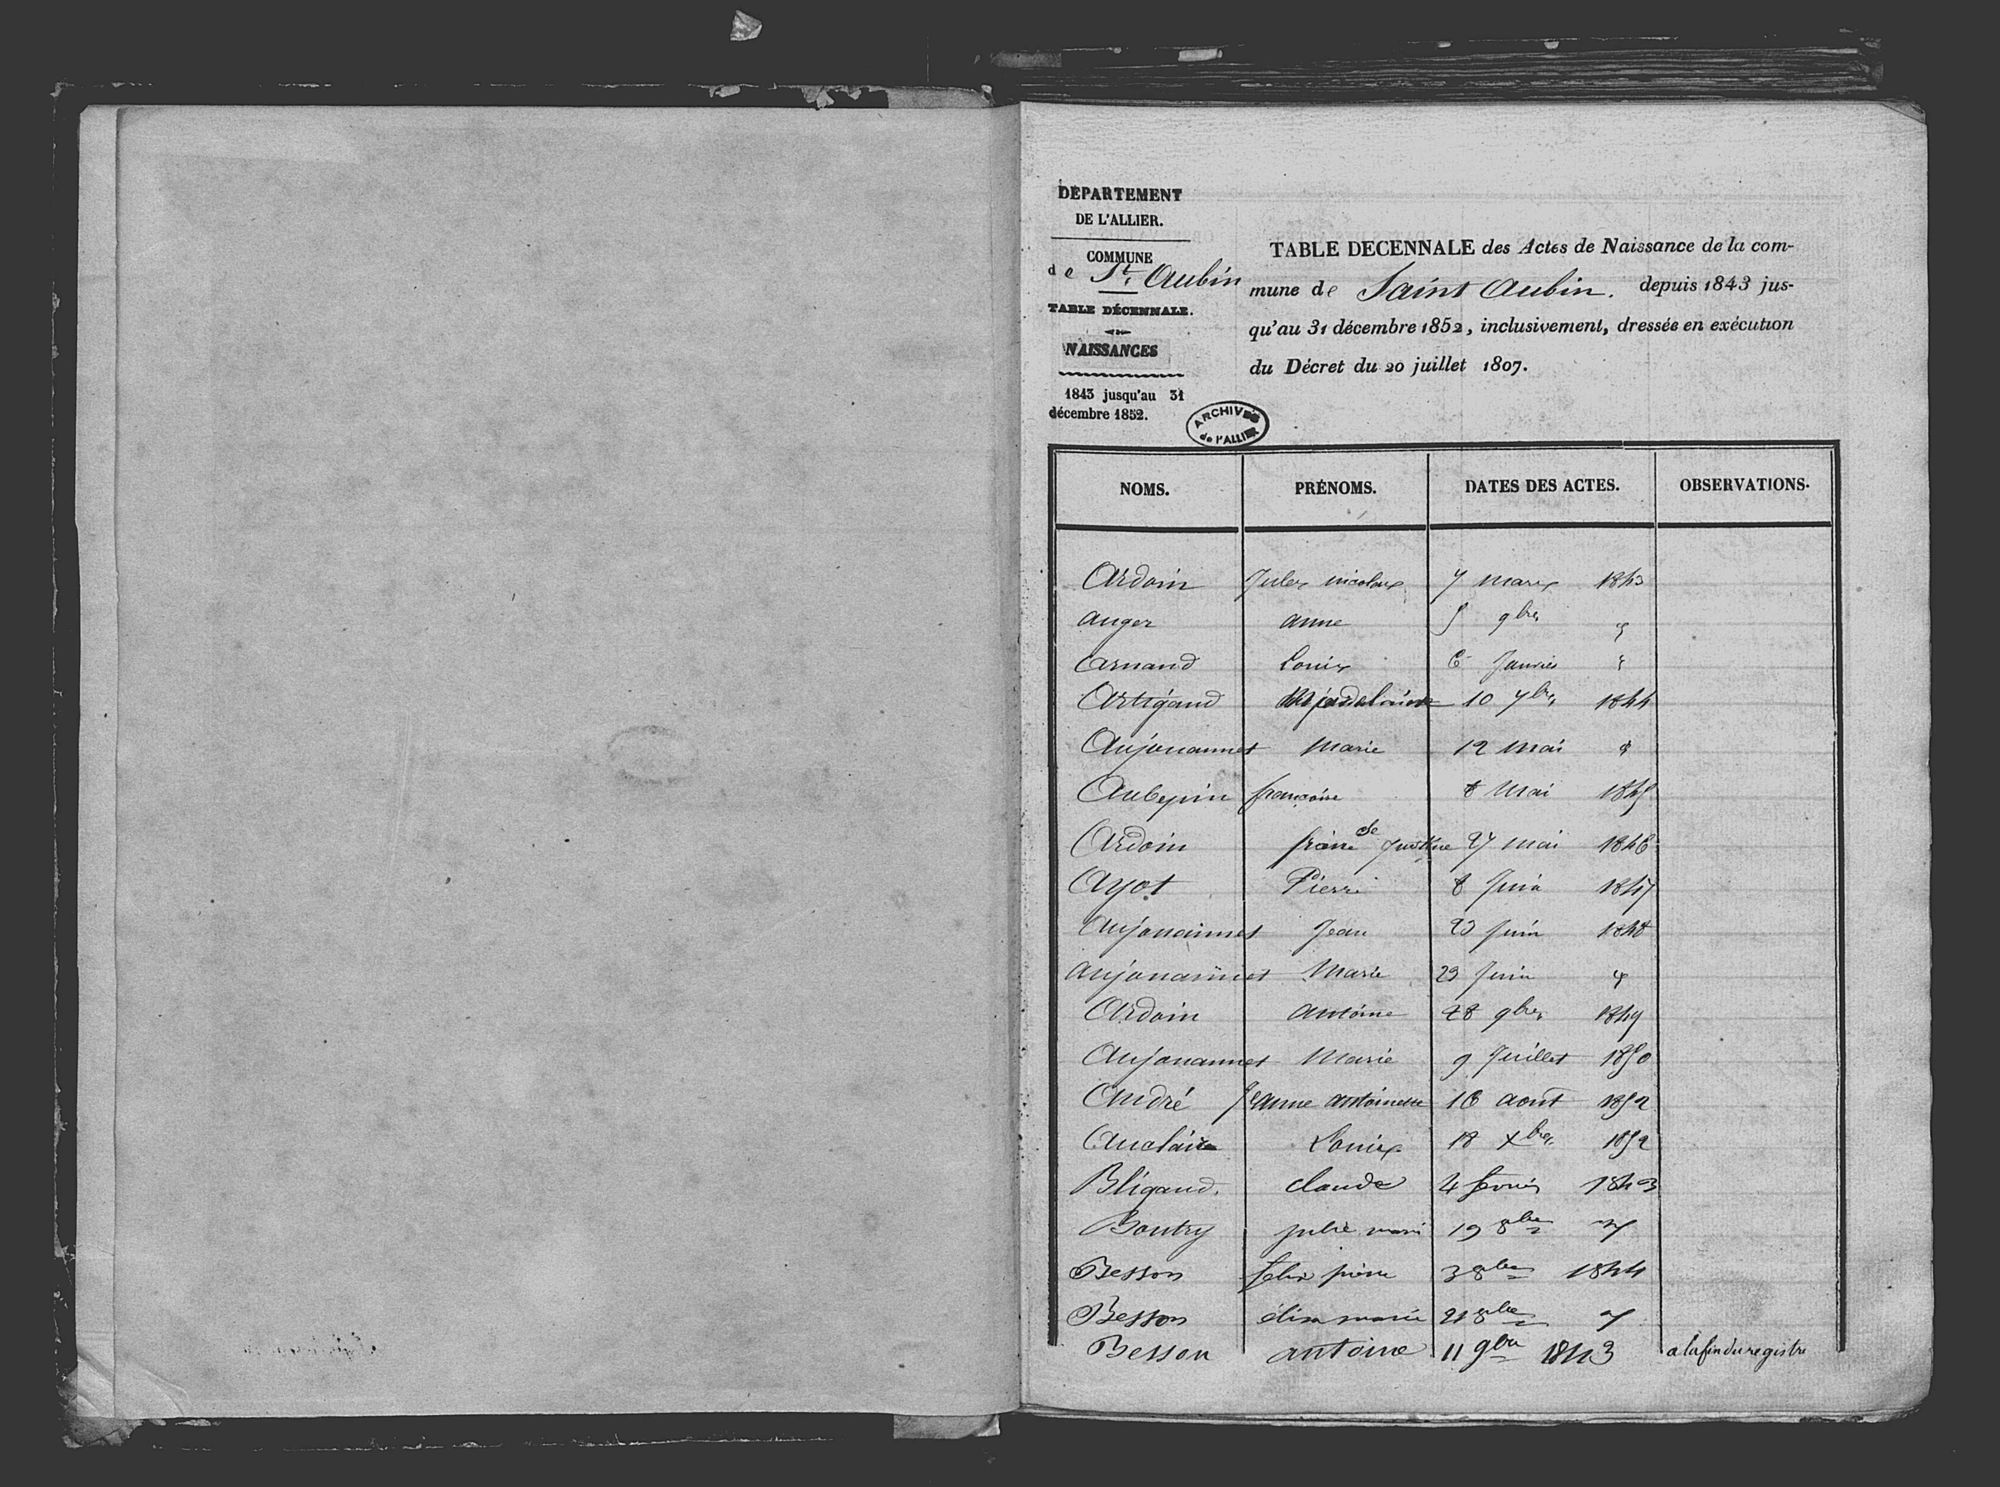 DÉPARTEMENT
DE L'ALLIER.
COMMUNE
de St. Aubin
TABLE DÉCENNALE.
NAISSANCES
1843 jusqu'au 31
décembre 1852.
TABLE DECENNALE des Actes de Naissance de la com-
mune de Saint Aubin. depuis 1843 jus-
qu'au 31 décembre 1852, inclusivement, dressée en exécution
du Décret du 20 juillet 1807.
ARCHIVES
de l'ALLIER
NOMS. PRÉNOMS. DATES DES ACTES. OBSERVATIONS.
Ardoin Jules nicolas 7 mars 1843
auger anne 5 9bre "
Arnaud Louis 6 Janvier "
Artigaud 10 7bre 1844
Aujouannet Marie 12 mai "
Aubepin françoise 8 Mai 1845
Ardoin Justine 27 mai 1846
Ayot Pierre 8 Juin 1847
Aujouannet Jean 23 Juin 1848
aujouannet Marie 23 Juin "
Ardoin antoine 28 9bre 1849
Aujouannet Marie 9 Juillet 1850
André Jeanne antoinette 16 aout 1852
Auclair Louis 18 Xbre 1852
Bligaud. claude 4 fevrier 1843
Boutry julie marie 19 8bre "
Besson felix pierre 3 8bre 1844
Besson élisa marie 21 8bre "
Besson antoine 11 9bre 1843 a la fin du registre